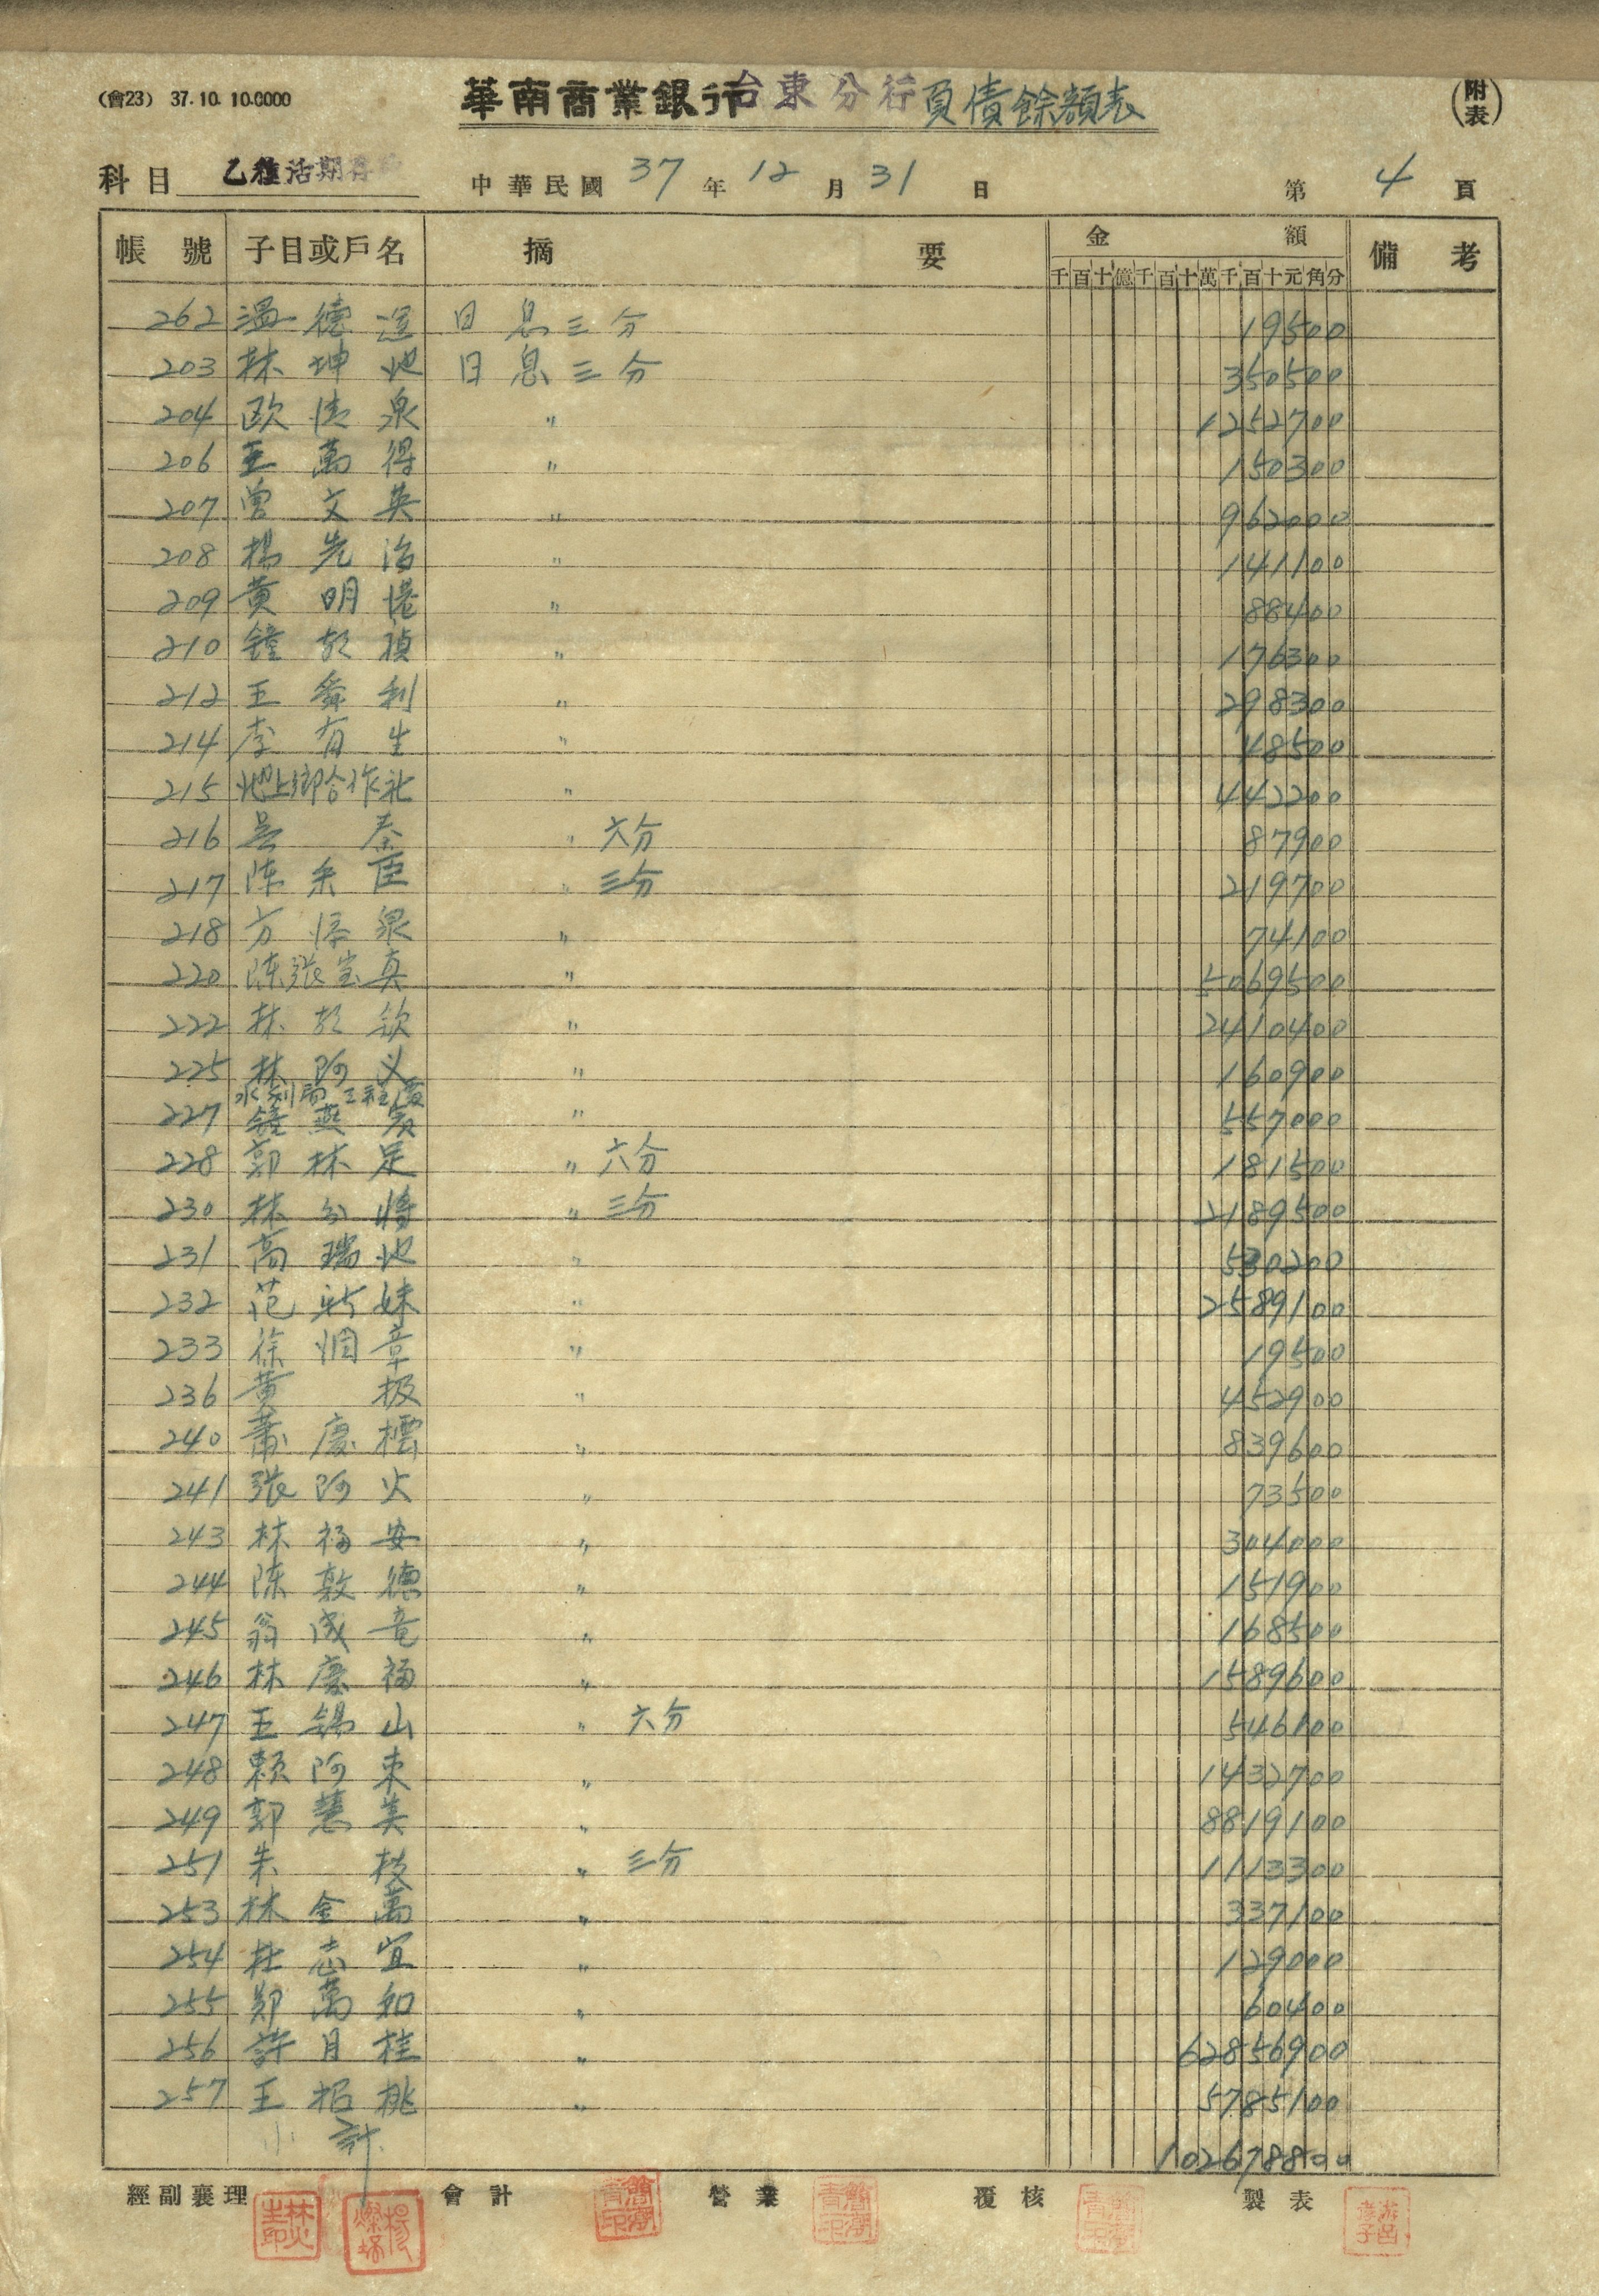 (會23) 37.10.10.0000
華南商業銀行台東分行負債餘額表
(附表)
科目 乙種活期存 中華民國 37 年 12 月 31 日 第 4 頁
帳號 子目或戶名 摘要 金額 備考
千百十億千百十萬千百十元角分
262 溫德 日息三分 19500
203 林坤地 日息三分 350500
204 欧清泉 〃 1252700
206 王萬得 〃 150300
207 曾文英 〃 962000
208 楊先治 〃 141100
209 黃明 〃 88400
210 鐘 禎 〃 176300
212 王舜利 〃 298300
214 李有生 〃 48500
215 池上鄉合作社 〃 442200
216 吳秦 〃 六分 87900
217 陈 臣 〃 三分 219700
218 方添泉 〃 74100
220 陈張宝真 〃 5069500
222 林 欽 〃 2410400
225 林阿义 〃 160900
水利局工程處
227 鐘燕 〃 557000
228 郭林足 〃 六分 181500
230 林 將 〃 三分 2189500
231 高瑞地 〃 530200
232 范新妹 〃 2589100
233 徐 章 〃 19500
236 黃极 〃 452900
240 蕭慶標 〃 839600
241 張阿火 〃 73500
243 林福安 〃 304000
244 陈敦德 〃 151900
245 翁成竜 〃 168500
246 林慶福 〃 1589600
247 王錫山 〃 六分 546100
248 賴阿束 〃 1432700
249 郭慧美 〃 8819100
251 朱枝 〃 三分 1113300
253 林金萬 〃 337100
254 杜志宜 〃 129000
255 鄭萬和 〃 60400
256 許月桂 〃 62856900
257 王招桃 〃 5785100
小計 102678800
經副襄理 會計 營業 覆核 製表